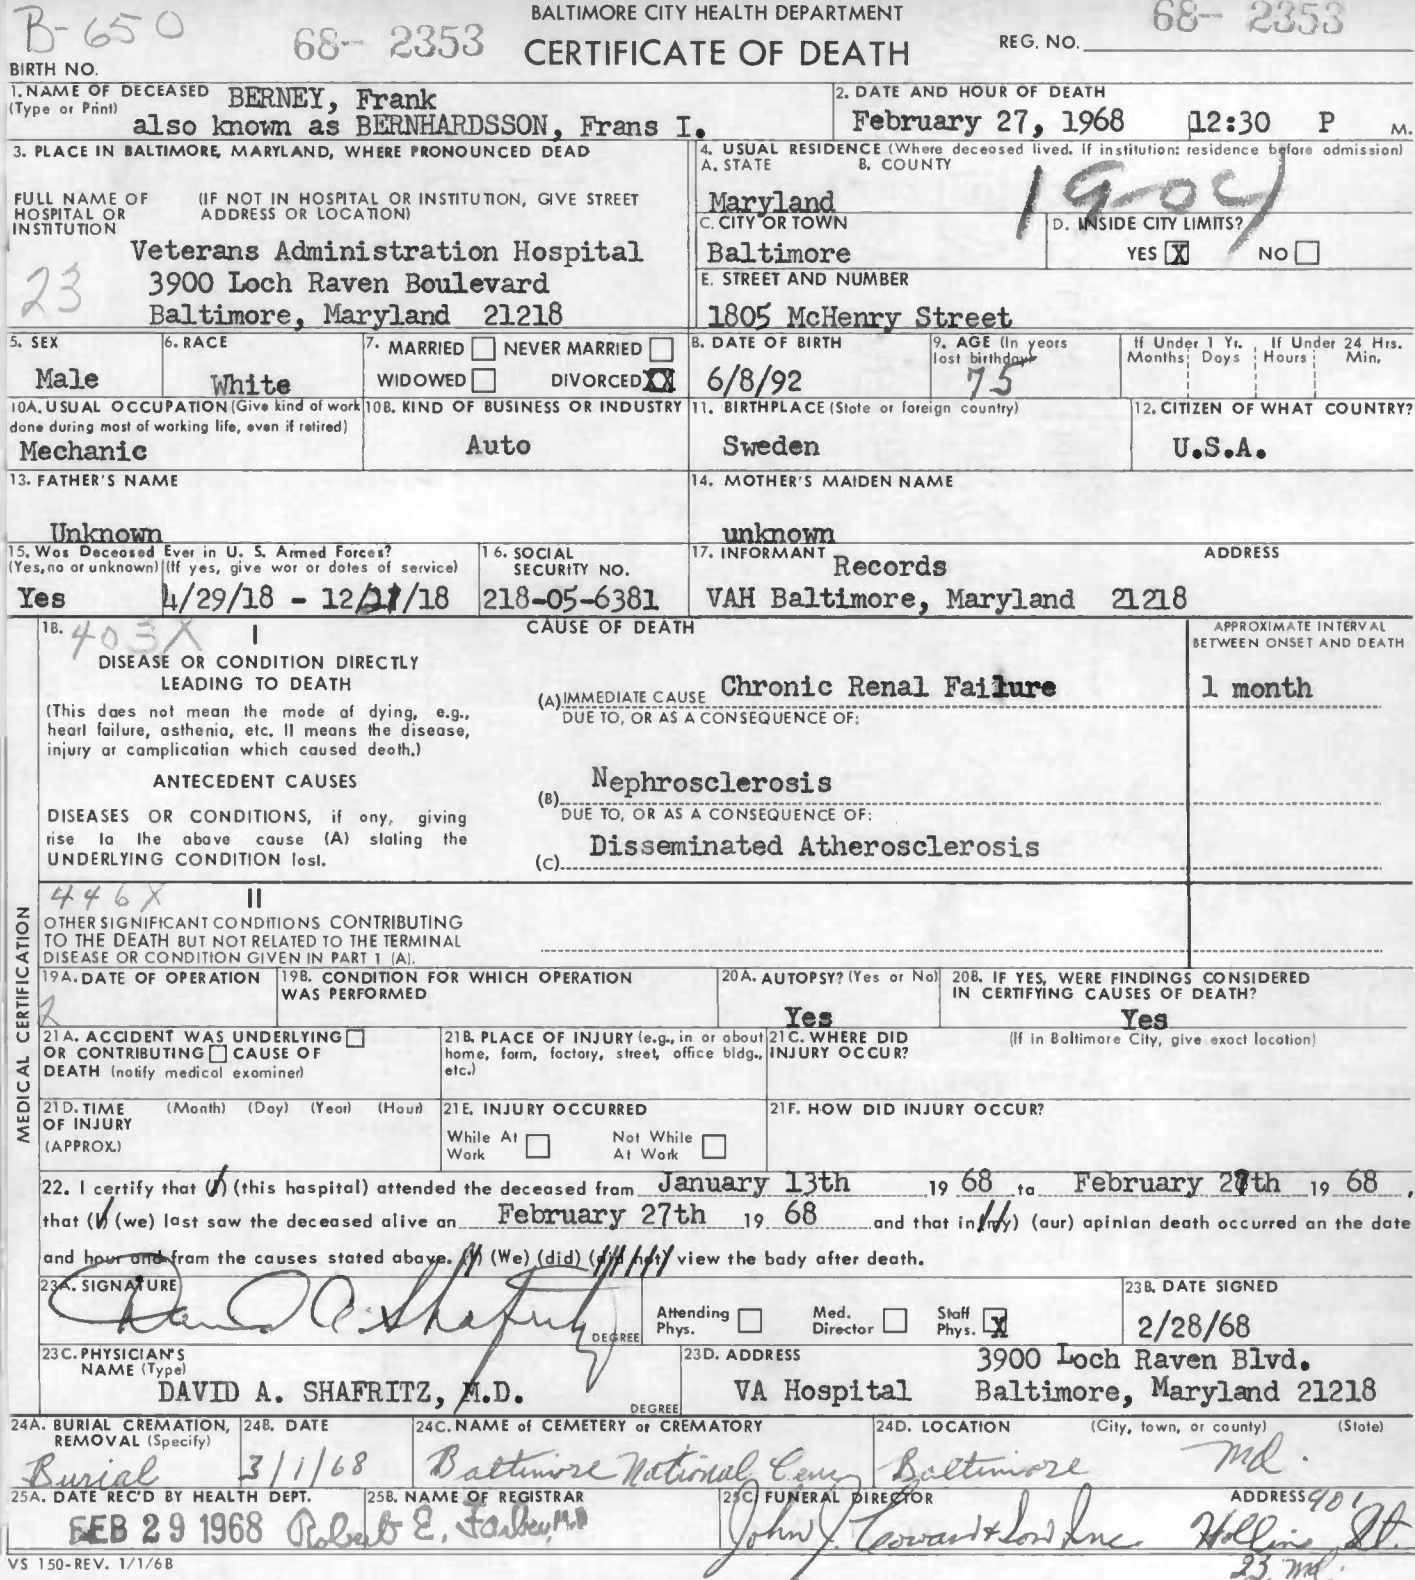 B-650
68- 2353
BALTIMORE CITY HEALTH DEPARTMENT
CERTIFICATE OF DEATH
68- 2353
REG. NO.
BIRTH NO.
1. NAME OF DECEASED BERNEY, Frank
(Type or Print) also known as BERNHARDSSON, Frans I.
2. DATE AND HOUR OF DEATH
February 27, 1968 12:30 P M.
3. PLACE IN BALTIMORE, MARYLAND, WHERE PRONOUNCED DEAD
FULL NAME OF HOSPITAL OR INSTITUTION
(IF NOT IN HOSPITAL OR INSTITUTION, GIVE STREET ADDRESS OR LOCATION)
Veterans Administration Hospital
23
3900 Loch Raven Boulevard
Baltimore, Maryland 21218
4. USUAL RESIDENCE (Where deceased lived. If institution: residence before admission)
A. STATE B. COUNTY
Maryland
1904
C. CITY OR TOWN
Baltimore
D. INSIDE CITY LIMITS?
YES X NO
E. STREET AND NUMBER
1805 McHenry Street
5. SEX
Male
6. RACE
White
7. MARRIED NEVER MARRIED
WIDOWED DIVORCED XX
8. DATE OF BIRTH
6/8/92
9. AGE (In years last birthday)
75
If Under 1 Yr. If Under 24 Hrs.
Months Days Hours Min.
10A. USUAL OCCUPATION (Give kind of work done during most of working life, even if retired)
Mechanic
10B. KIND OF BUSINESS OR INDUSTRY
Auto
11. BIRTHPLACE (State or foreign country)
Sweden
12. CITIZEN OF WHAT COUNTRY?
U.S.A.
13. FATHER'S NAME
Unknown
14. MOTHER'S MAIDEN NAME
unknown
15. Was Deceased Ever in U. S. Armed Forces?
(Yes, no or unknown) (If yes, give war or dates of service)
Yes 4/29/18 - 12/11/18
16. SOCIAL SECURITY NO.
218-05-6381
17. INFORMANT ADDRESS
Records
VAH Baltimore, Maryland 21218
MEDICAL CERTIFICATION
18. 403X I
CAUSE OF DEATH
APPROXIMATE INTERVAL BETWEEN ONSET AND DEATH
DISEASE OR CONDITION DIRECTLY
LEADING TO DEATH
(This does not mean the mode of dying, e.g.,
heart failure, asthenia, etc. It means the disease,
injury or complication which caused death.)
(A) IMMEDIATE CAUSE Chronic Renal Failure 1 month
DUE TO, OR AS A CONSEQUENCE OF:
ANTECEDENT CAUSES
DISEASES OR CONDITIONS, if any, giving
rise to the above cause (A) stating the
UNDERLYING CONDITION last.
(B) Nephrosclerosis
DUE TO, OR AS A CONSEQUENCE OF:
(C) Disseminated Atherosclerosis
446X II
OTHER SIGNIFICANT CONDITIONS CONTRIBUTING
TO THE DEATH BUT NOT RELATED TO THE TERMINAL
DISEASE OR CONDITION GIVEN IN PART 1 (A).
19A. DATE OF OPERATION
19B. CONDITION FOR WHICH OPERATION WAS PERFORMED
20A. AUTOPSY? (Yes or No)
Yes
20B. IF YES, WERE FINDINGS CONSIDERED IN CERTIFYING CAUSES OF DEATH?
Yes
21A. ACCIDENT WAS UNDERLYING
OR CONTRIBUTING CAUSE OF
DEATH (notify medical examiner)
21B. PLACE OF INJURY (e.g., in or about
home, farm, factory, street, office bldg.,
etc.)
21C. WHERE DID INJURY OCCUR?
(If in Baltimore City, give exact location)
21D. TIME OF INJURY (APPROX.)
(Month) (Day) (Year) (Hour)
21E. INJURY OCCURRED
While At Work Not While At Work
21F. HOW DID INJURY OCCUR?
22. I certify that (I) (this hospital) attended the deceased from January 13th 19 68 to February 27th 19 68,
that (I) (we) last saw the deceased alive on February 27th 19 68 and that in (my) (our) opinion death occurred on the date
and hour and from the causes stated above. (I) (We) (did) (did not) view the body after death.
23A. SIGNATURE
David A. Shafritz
DEGREE
Attending Phys. Med. Director Staff Phys. X
23B. DATE SIGNED
2/28/68
23C. PHYSICIAN'S NAME (Type)
DAVID A. SHAFRITZ, M.D.
DEGREE
23D. ADDRESS 3900 Loch Raven Blvd.
VA Hospital Baltimore, Maryland 21218
24A. BURIAL CREMATION, REMOVAL (Specify)
Burial
24B. DATE
3/1/68
24C. NAME of CEMETERY or CREMATORY
Baltimore National Cem
24D. LOCATION (City, town, or county) (State)
Baltimore Md.
25A. DATE REC'D BY HEALTH DEPT.
FEB 29 1968
25B. NAME OF REGISTRAR
Robert E. Farber, M.D.
25C. FUNERAL DIRECTOR ADDRESS
John J. Cowan & Son Inc 901 Hollins St.
23 Md.
VS 150-REV. 1/1/68